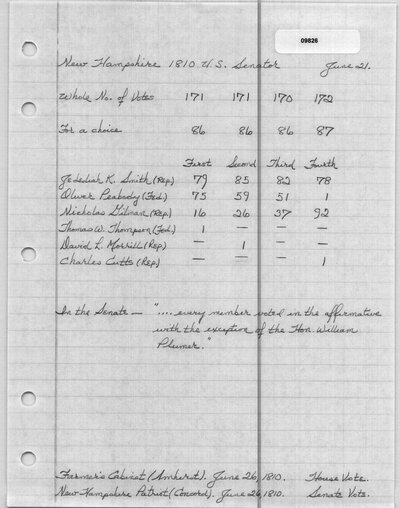 09826
New Hampshire 1810 U.S. Senator June 21.
Whole No. of Votes 171 171 170 172
For a choice 86 86 86 87
First Second Third Fourth
Jedediah K. Smith (Rep.) 79 85 82 78
Oliver Peabody (Fed.) 75 59 51 1
Nicholas Gilman (Rep.) 16 26 37 92
Thomas W. Thompson (Fed.) 1 — — —
David L. Morrill (Rep) — 1 — —
Charles Cutts (Rep) — — — 1
In the Senate — ".... every member voted in the affirmative
with the exception of the Hon. William
Plumer."
Farmer's Cabinet (Amherst). June 26, 1810. House Vote.
New Hampshire Patriot (Concord). June 26, 1810. Senate Vote.